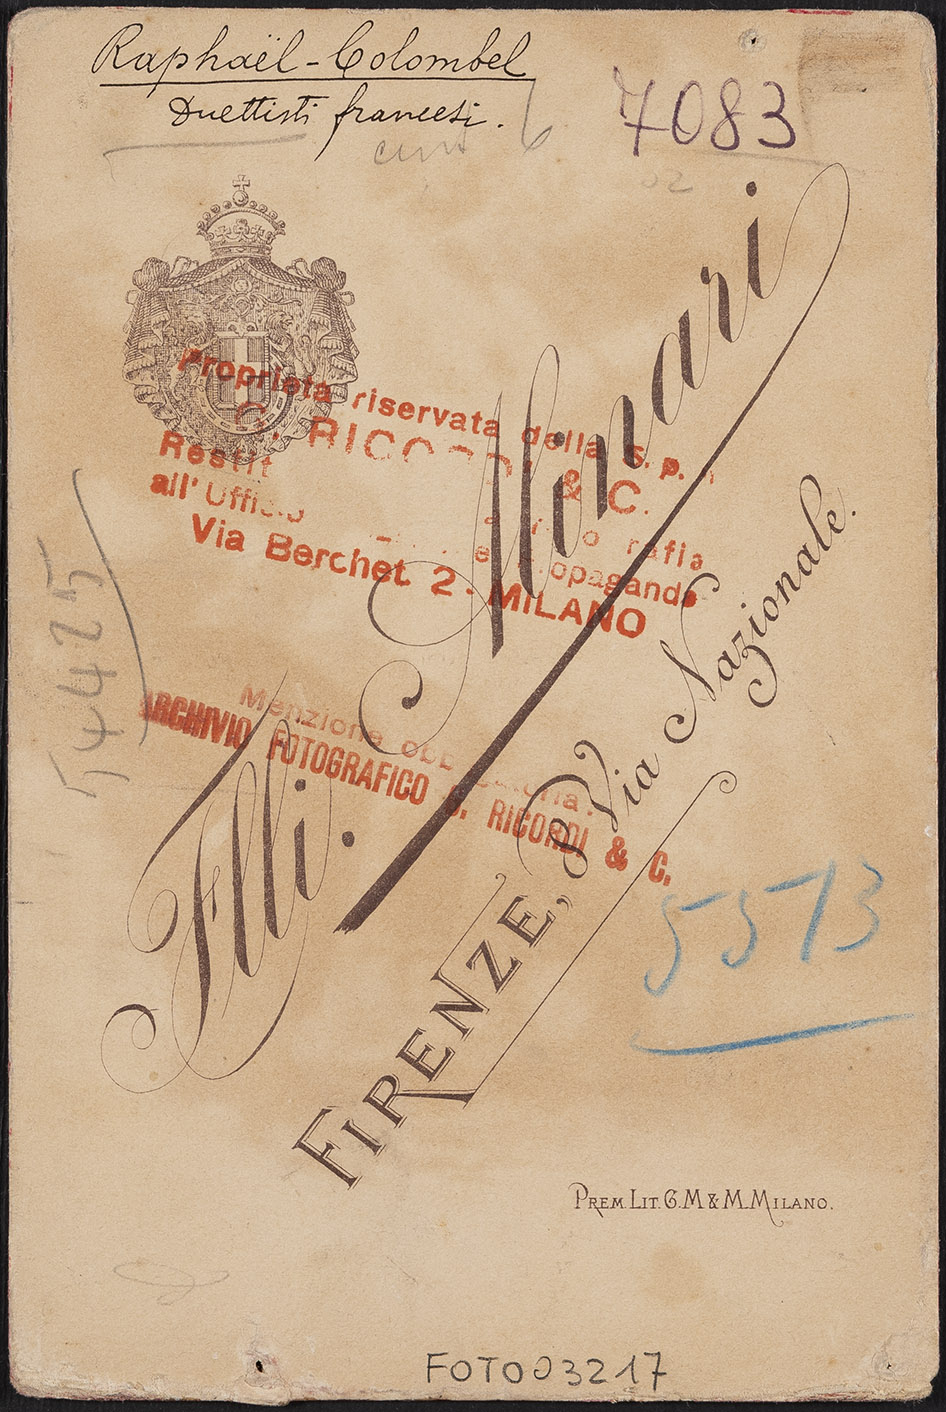 Raphaël-Colombel
Duettisti francesi.
7083
Proprietà riservata della S. p.
G. RICORDI & C.
Restit
all'Ufficio
e propaganda
Via Berchet 2 - MILANO
54425
Menzione obbligatoria.
ARCHIVIO FOTOGRAFICO G. RICORDI & C.
Flli. Minari
FIRENZE, 8 Via Nazionale.
5573
PREM. LIT. G. M & M. MILANO.
FOTO03217